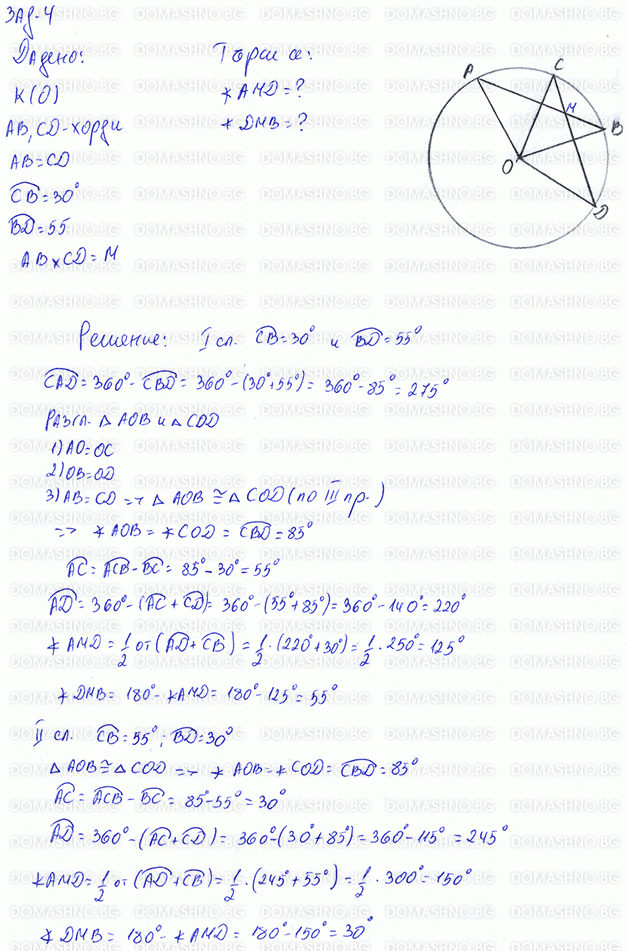 Зад. 4
Дадено:
K(O)
AB, CD - хорди
AB = CD
⌒CB = 30°
⌒BD = 55
AB × CD = M
Търси се:
∢ AMD = ?
∢ DMB = ?
A
C
M
B
O
D
Решение: I сл. ⌒CB = 30° и ⌒BD = 55°
⌒CAD = 360° - ⌒CBD = 360° - (30° + 55°) = 360° - 85° = 275°
Разгл. △ AOB и △ COD
1) AO = OC
2) OB = OD
3) AB = CD => △ AOB ≅ △ COD (по III пр.)
=> ∢ AOB = ∢ COD = ⌒CBD = 85°
⌒AC = ⌒ACB - ⌒BC = 85° - 30° = 55°
⌒AD = 360° - (⌒AC + ⌒CD) = 360° - (55° + 85°) = 360° - 140° = 220°
∢ AMD = 1/2 от (⌒AD + ⌒CB) = 1/2 . (220° + 30°) = 1/2 . 250° = 125°
∢ DMB = 180° - ∢ AMD = 180° - 125° = 55°
II сл. ⌒CB = 55° ; ⌒BD = 30°
△ AOB ≅ △ COD => ∢ AOB = ∢ COD = ⌒CBD = 85°
⌒AC = ⌒ACB - ⌒BC = 85° - 55° = 30°
⌒AD = 360° - (⌒AC + ⌒CD) = 360° - (30° + 85°) = 360° - 115° = 245°
∢ AMD = 1/2 от (⌒AD + ⌒CB) = 1/2 . (245° + 55°) = 1/2 . 300° = 150°
∢ DMB = 180° - ∢ AMD = 180° - 150° = 30°
DOMASHNO.BG